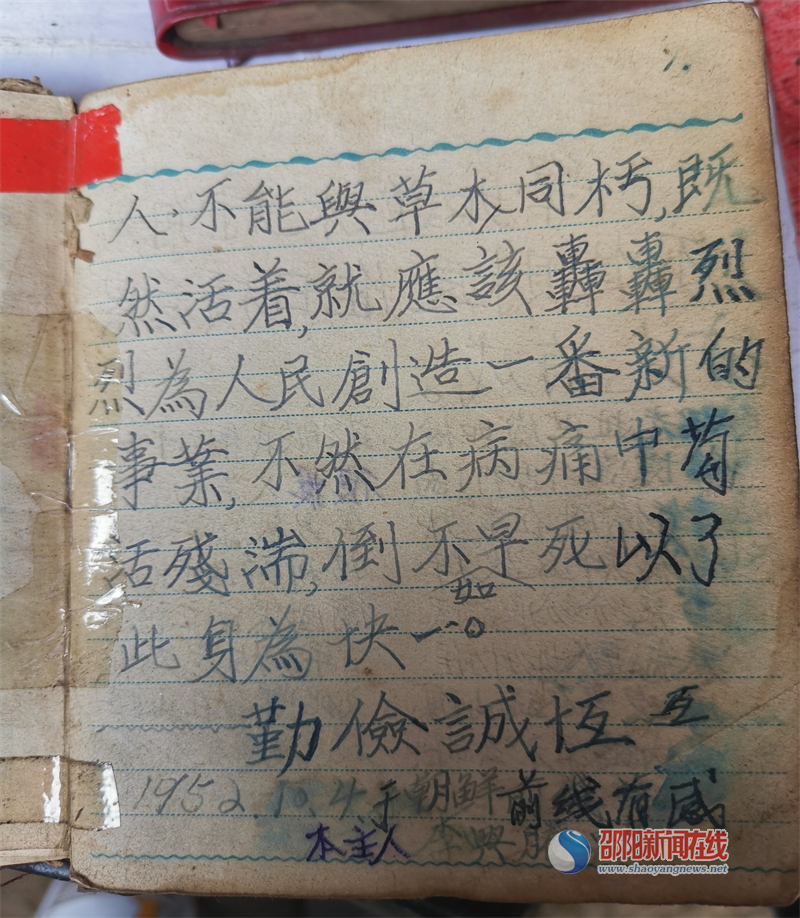 人、不能與草木同朽,既
然活着,就應該轟轟烈
烈為人民創造一番新的
事業,不然在病痛中茍
活殘湍,倒不如早死以了
此身為快一。
勤儉誠恆 互
1952.10.4于朝鮮前线有感
本主人 李興
邵阳新闻在线
www.shaoyangnews.net